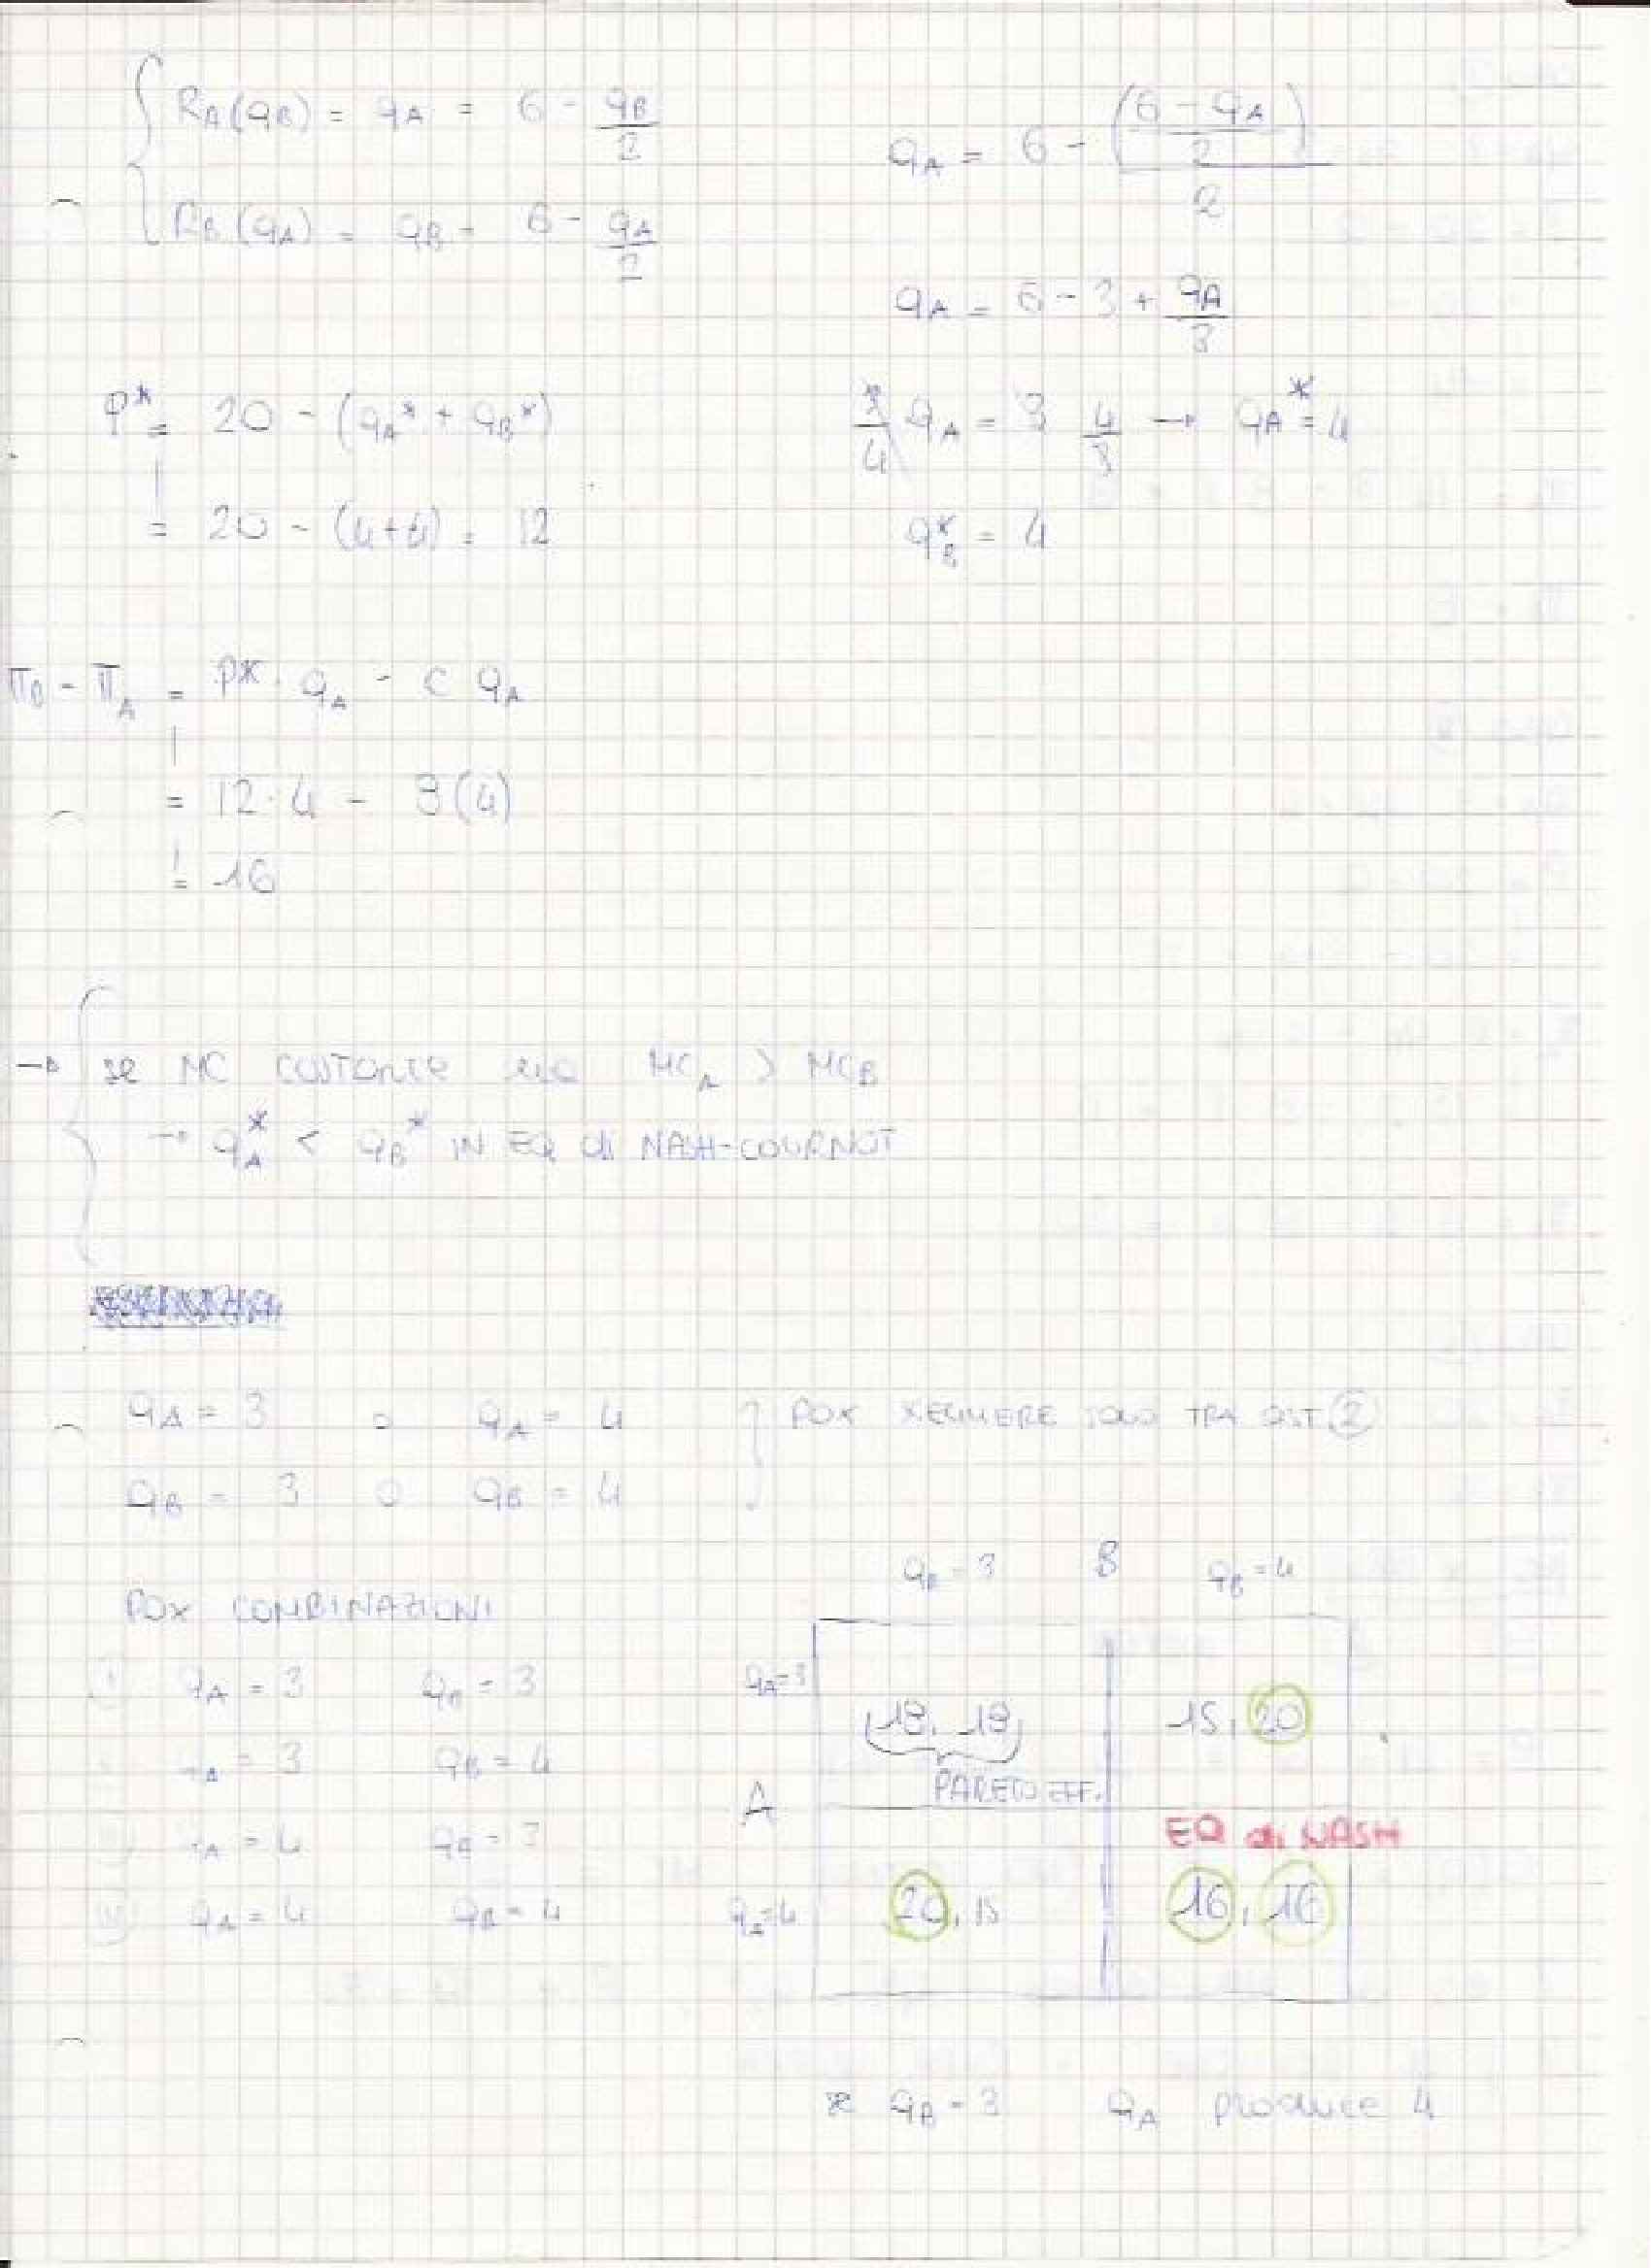 R_A(q_B) = q_A = 6 - q_B/2
R_B(q_A) = q_B = 6 - q_A/2
q_A = 6 - (6 - q_A/2)/2
q_A = 6 - 3 + q_A/3
3/4 q_A = 3 4/3 → q_A* = 4
q_B* = 4
P* = 20 - (q_A* + q_B*)
= 20 - (4+4) = 12
π_B = π_A = P* · q_A - c q_A
= 12·4 - 3(4)
= 16
→ se MC costante MC_A > MC_B
→ q_A* < q_B* IN EQ di NASH-COURNOT
q_A = 3 o q_A = 4
q_B = 3 o q_B = 4
POX SOLO TRA 2
POX COMBINAZIONI
q_A = 3 q_B = 3
q_A = 3 q_B = 4
q_A = 4 q_B = 3
q_A = 4 q_B = 4
q_B = 3 B q_B = 4
q_A = 3 18, 18 15, 20
PARETO EFF.
A
EQ di NASH
q_A = 4 20, 15 16, 16
se q_B = 3 q_A produce 4